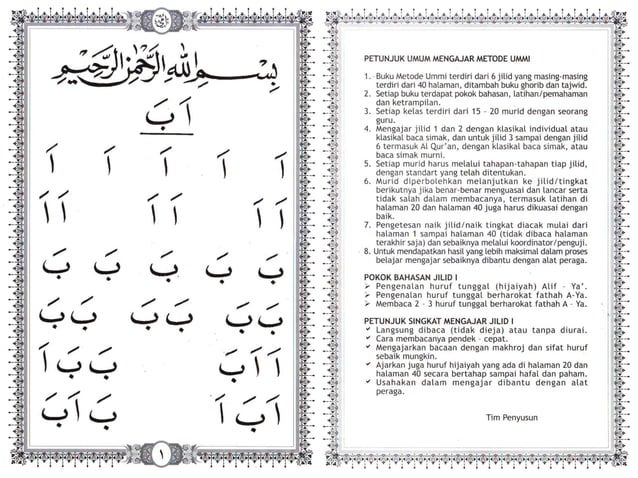 بِسْمِ اللهِ الرَّحْمٰنِ الرَّحِيْمِ
اَ بَ
اَ اَ اَ اَ اَ
اَ اَ اَ اَ اَ اَ
بَ بَ بَ بَ بَ
بَ بَ بَ بَ بَ بَ
اَ اَ بَ اَ بَ بَ
اَ بَ اَ بَ اَ بَ
١
PETUNJUK UMUM MENGAJAR METODE UMMI
1. Buku Metode Ummi terdiri dari 6 jilid yang masing-masing
terdiri dari 40 halaman, ditambah buku ghorib dan tajwid.
2. Setiap buku terdapat pokok bahasan, latihan/pemahaman
dan ketrampilan.
3. Setiap kelas terdiri dari 15 - 20 murid dengan seorang
guru.
4. Mengajar jilid 1 dan 2 dengan klasikal individual atau
klasikal baca simak, dan untuk jilid 3 sampai dengan jilid
6 termasuk Al Qur'an, dengan klasikal baca simak, atau
baca simak murni.
5. Setiap murid harus melalui tahapan-tahapan tiap jilid,
dengan standart yang telah ditentukan.
6. Murid diperbolehkan melanjutkan ke jilid/tingkat
berikutnya jika benar-benar menguasai dan lancar serta
tidak salah dalam membacanya, termasuk latihan di
halaman 20 dan halaman 40 juga harus dikuasai dengan
baik.
7. Pengetesan naik jilid/naik tingkat diacak mulai dari
halaman 1 sampai halaman 40 (tidak dibaca halaman
terakhir saja) dan sebaiknya melalui koordinator/penguji.
8. Untuk mendapatkan hasil yang lebih maksimal dalam proses
belajar mengajar sebaiknya dibantu dengan alat peraga.
POKOK BAHASAN JILID I
➢ Pengenalan huruf tunggal (hijaiyah) Alif – Ya'.
➢ Pengenalan huruf tunggal berharokat fathah A-Ya.
➢ Membaca 2 - 3 huruf tunggal berharokat fathah A – Ya.
PETUNJUK SINGKAT MENGAJAR JILID I
✓ Langsung dibaca (tidak dieja) atau tanpa diurai.
✓ Cara membacanya pendek - cepat.
✓ Mengajarkan bacaan dengan makhroj dan sifat huruf
sebaik mungkin.
✓ Ajarkan juga huruf hijaiyah yang ada di halaman 20 dan
halaman 40 secara bertahap sampai hafal dan paham.
✓ Usahakan dalam mengajar dibantu dengan alat
peraga.
Tim Penyusun